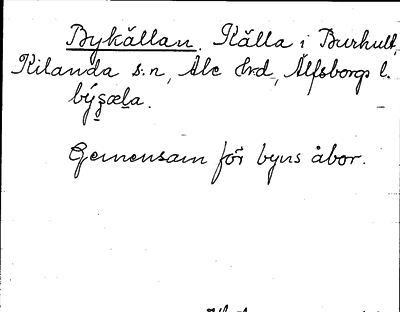 Bykällan. Källa i Burhult,
Kilanda s:n, Ale hrd, Älfsborgs l.
býʂæḷa.
Gemensam för byns åbor.